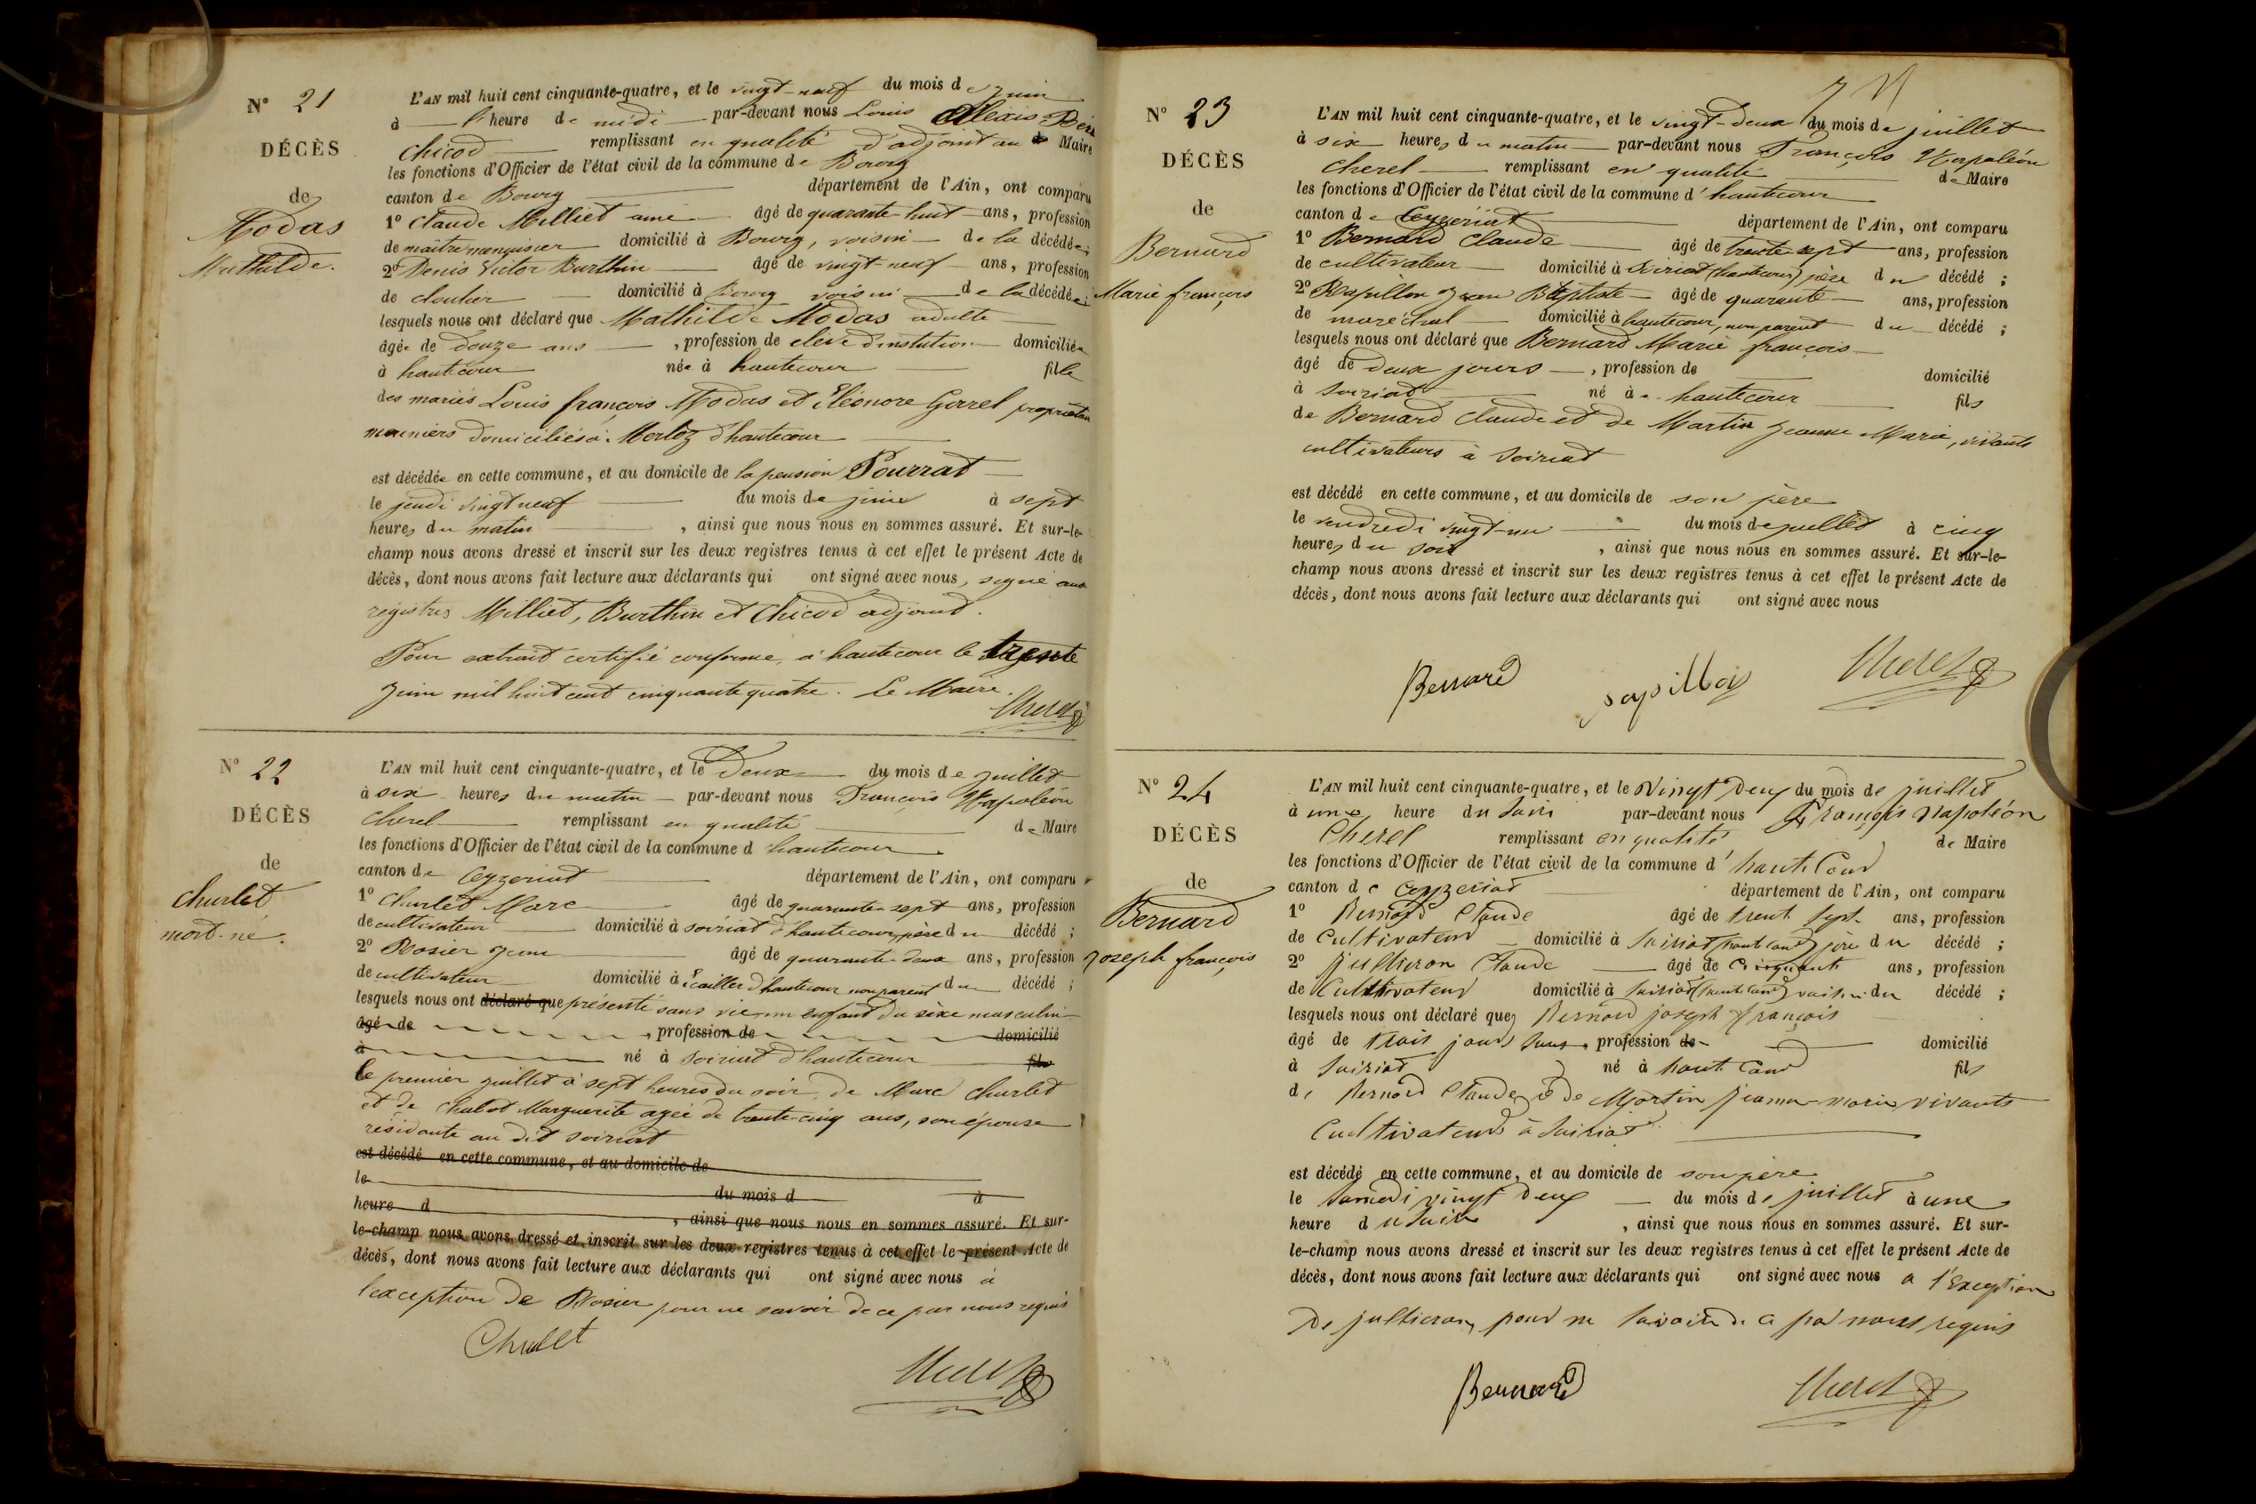 N° 21
DÉCÈS
de
Modas
Mathilde.
L'AN mil huit cent cinquante-quatre, et le vingt-neuf du mois de juin
à l'heure de midi par-devant nous Louis Alexis Béné
Chicod remplissant en qualité d'adjoint au Maire
les fonctions d'Officier de l'état civil de la commune de Bourg
canton de Bourg département de l'Ain, ont comparu
1° Claude Milliet ainé âgé de quarante huit ans, profession
de maître menuisier domicilié à Bourg, voisin de la décédée;
2° Denis Victor Burthin âgé de vingt-neuf ans, profession
de cloutier domicilié à Bourg voisin de la décédée;
lesquels nous ont déclaré que Mathilde Modas adulte
âgée de douze ans, profession de eleve d'instution domiciliée
à hautecour née à hautecour fille
des mariés Louis françois Modas et Eléonore Gorrel propriétaires
meuniers domiciliés à Merloz d'hautecour
est décédée en cette commune, et au domicile de la pension Pourrat
le jeudi vingt neuf du mois de juin à sept
heures du matin, ainsi que nous nous en sommes assuré. Et sur-le-
champ nous avons dressé et inscrit sur les deux registres tenus à cet effet le présent Acte de
décès, dont nous avons fait lecture aux déclarants qui ont signé avec nous, signé aux
registres Milliet, Burthin et Chicod adjoint.
Pour extrait certifié conforme, à hautecour le trente
juin mil huit cent cinquante quatre. Le Maire.
Cherel
N° 22
DÉCÈS
de
Churlet
mort-né.
L'AN mil huit cent cinquante-quatre, et le Deux du mois de juillet
à six heures du matin par-devant nous François Napoléon
Cherel remplissant en qualité de Maire
les fonctions d'Officier de l'état civil de la commune d hautecour
canton de Ceyzeriat département de l'Ain, ont comparu
1° Churlet Marc âgé de quarante-sept ans, profession
de cultivateur domicilié à soiriat d'hautecour, père du décédé;
2° Rosier Jean âgé de quarante-deux ans, profession
de cultivateur domicilié à Écailler d'hautecour non parent du décédé;
lesquels nous ont déclaré que présenté sans vie un enfant du sèxe masculin
âgé de, profession de domicilié
à né à soiriat d'hautecour fils
le premier juillet à sept heures du soir, de Marc Churlet
et de Chabot Marguerite agée de trente-cinq ans, son épouse
résidante au dit soiriat
est décédé en cette commune, et au domicile de
le du mois d à
heure d, ainsi que nous nous en sommes assuré. Et sur-
le-champ nous avons dressé et inscrit sur les deux registres tenus à cet effet le présent Acte de
décès, dont nous avons fait lecture aux déclarants qui ont signé avec nous à
l'exception de Rosier pour ne savoir de ce par nous requis
Churlet
Cherel
N° 23
DÉCÈS
de
Bernard
Marie françois
L'AN mil huit cent cinquante-quatre, et le vingt-deux du mois de juillet
à six heures du matin par-devant nous François Napoléon
Cherel remplissant en qualité de Maire
les fonctions d'Officier de l'état civil de la commune d'hautecour
canton de Ceyzériat département de l'Ain, ont comparu
1° Bernard Claude âgé de trente-sept ans, profession
de cultivateur domicilié à Soiriat (hautecour) père du décédé;
2° Papillon Jean Baptiste âgé de quarante ans, profession
de maréchal domicilié à hautecour, non parent du décédé;
lesquels nous ont déclaré que Bernard Marie françois
âgé de deux jours, profession de domicilié
à Soiriat né à hautecour fils
de Bernard Claude et de Martin Jeanne Marie, vivants
cultivateurs à Soiriat
est décédé en cette commune, et au domicile de son père
le vendredi vingt-un du mois de juillet à cinq
heures du soir, ainsi que nous nous en sommes assuré. Et sur-le-
champ nous avons dressé et inscrit sur les deux registres tenus à cet effet le présent Acte de
décès, dont nous avons fait lecture aux déclarants qui ont signé avec nous
Bernard papillon Cherel
N° 24
DÉCÈS
de
Bernard
Joseph françois
L'AN mil huit cent cinquante-quatre, et le Vingt Deux du mois de juillet
à une heure du Soir par-devant nous François Napoléon
Cherel remplissant en qualité de Maire
les fonctions d'Officier de l'état civil de la commune d'haute Cour
canton de Ceyzeriat département de l'Ain, ont comparu
1° Bernard Claude âgé de trente sept ans, profession
de Cultivateur domicilié à Soiriat (haute Cour) père du décédé;
2° Jullieron Claude âgé de Cinquante ans, profession
de Cultivateur domicilié à Soiriat (haute Cour) voisin du décédé;
lesquels nous ont déclaré que Bernard joseph françois
âgé de trois jours sans profession de domicilié
à Soiriat né à haute Cour fils
de Bernard Claude et de Martin Jeanne-marie vivants
Cultivateurs à Soiriat
est décédé en cette commune, et au domicile de son père
le Samedi vingt Deux du mois de juillet à une
heure du Soir, ainsi que nous nous en sommes assuré. Et sur-
le-champ nous avons dressé et inscrit sur les deux registres tenus à cet effet le présent Acte de
décès, dont nous avons fait lecture aux déclarants qui ont signé avec nous a l'Exception
De jullieron, pour ne Savoir de ce par nous requis
Bernard Cherel